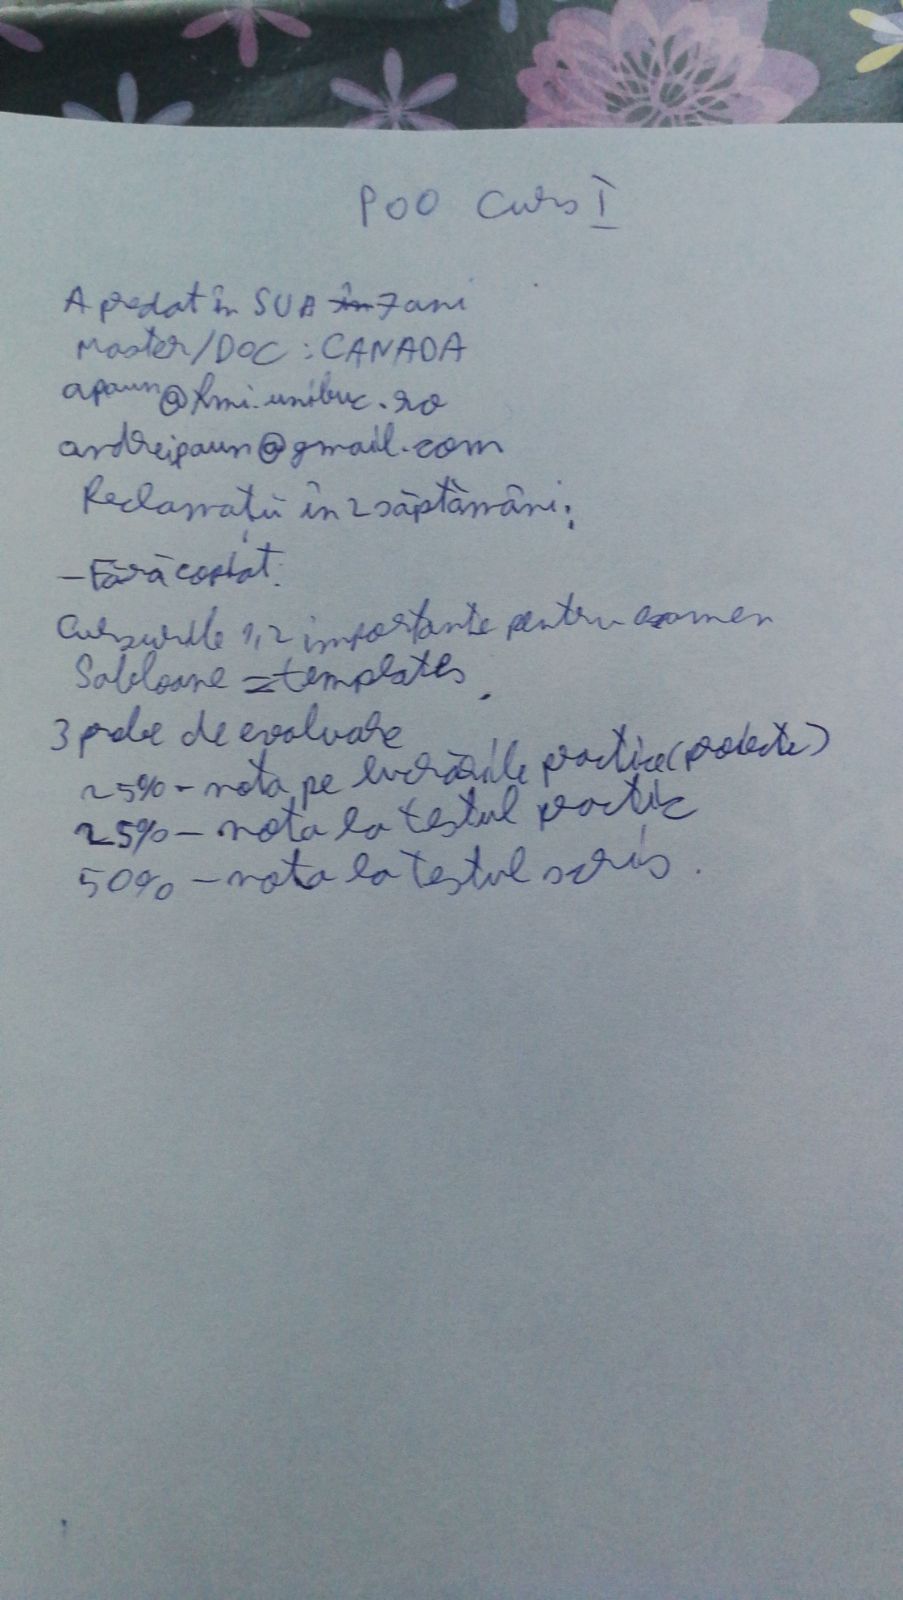 POO Curs I
A predat în SUA în 7 ani
Master/DOC : CANADA
apaun@fmi.unibuc.ro
andreipaun@gmail.com
Reclamații în 2 săptămâni;
- Fără copiat.
Cursurile 1,2 importante pentru examen
Sabloane = templates.
3 probe de evaluare
25% - nota pe lucrările practice (proiecte)
25% - nota la testul practic
50% - nota la testul scris.